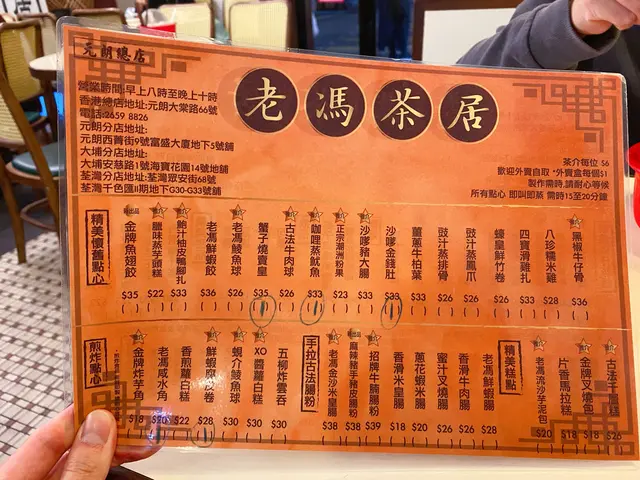 元朗總店
老馮茶居
營業時間:早上八時至晚上十時
香港總店地址:元朗大棠路66號
電話:2659 8826
元朗分店地址:
元朗西菁街9號富盛大廈地下5號舖
大埔分店地址:
大埔安慈路1號海寶花園14號地舖
荃灣分店地址:荃灣眾安街68號
荃灣千色匯II期地下G30-G33號舖
茶介每位 $6
歡迎外賣自取 *外賣盒每個$1
製作需時,請耐心等候
所有點心 即叫即蒸 需時15至20分鐘
精美懷舊點心
金牌魚翅餃 $35
臘味蒸芋頭糕 $22
鮑汁柚皮鴨腳扎 $33
老馮鮮蝦餃 $36
老馮鯪魚球 $26
蟹子燒賣皇 $35
古法牛肉球 $26
咖哩蒸魷魚 $33
正宗潮洲粉果 $23
沙嗲豬大腸 $33
沙嗲金錢肚 $33
薑蔥牛柏葉
豉汁蒸排骨 $26
豉汁蒸鳳爪
蠔皇鮮竹卷 $26
四寶滑雞扎 $33
八珍糯米雞
黑椒牛仔骨 $36
煎炸點心
金牌炸芋角 $18
老馮咸水角
香煎蘿白糕 $22
鮮蝦腐皮卷 $28
蜆介鯪魚球 $30
XO醬蘿白糕 $30
五柳炸雲吞 $30
手拉古法腸粉
老馮金沙米腸 $38
麻辣豬手豬皮腸粉 $38
招牌牛腩腸粉 $39
香滑米皇腸 $18
蔥花蝦米腸 $20
蜜汁叉燒腸 $26
香滑牛肉腸 $26
老馮鮮蝦腸 $28
精美糕點
老馮流沙芋泥包 $20
片香馬拉糕 $18
金牌叉燒包 $18
古法千層糕 $26